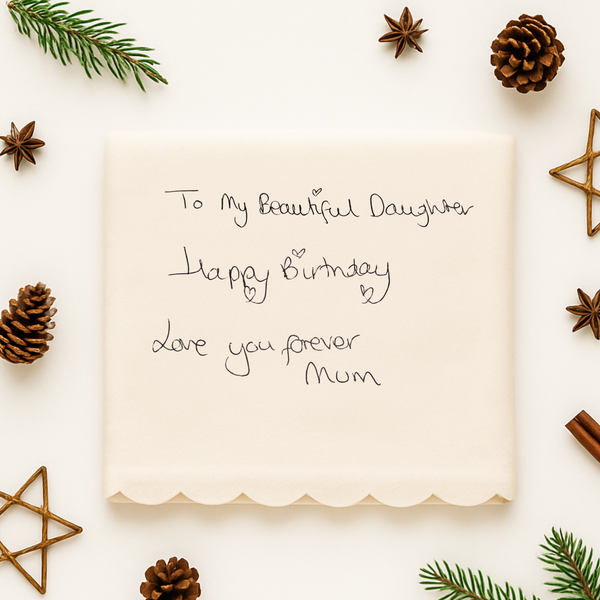 To My Beautiful Daughter
Happy Birthday
Love you forever
Mum